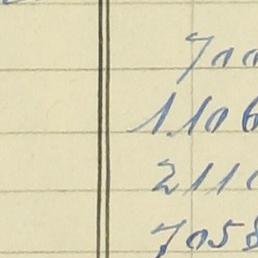 700
1.106
2110
7058